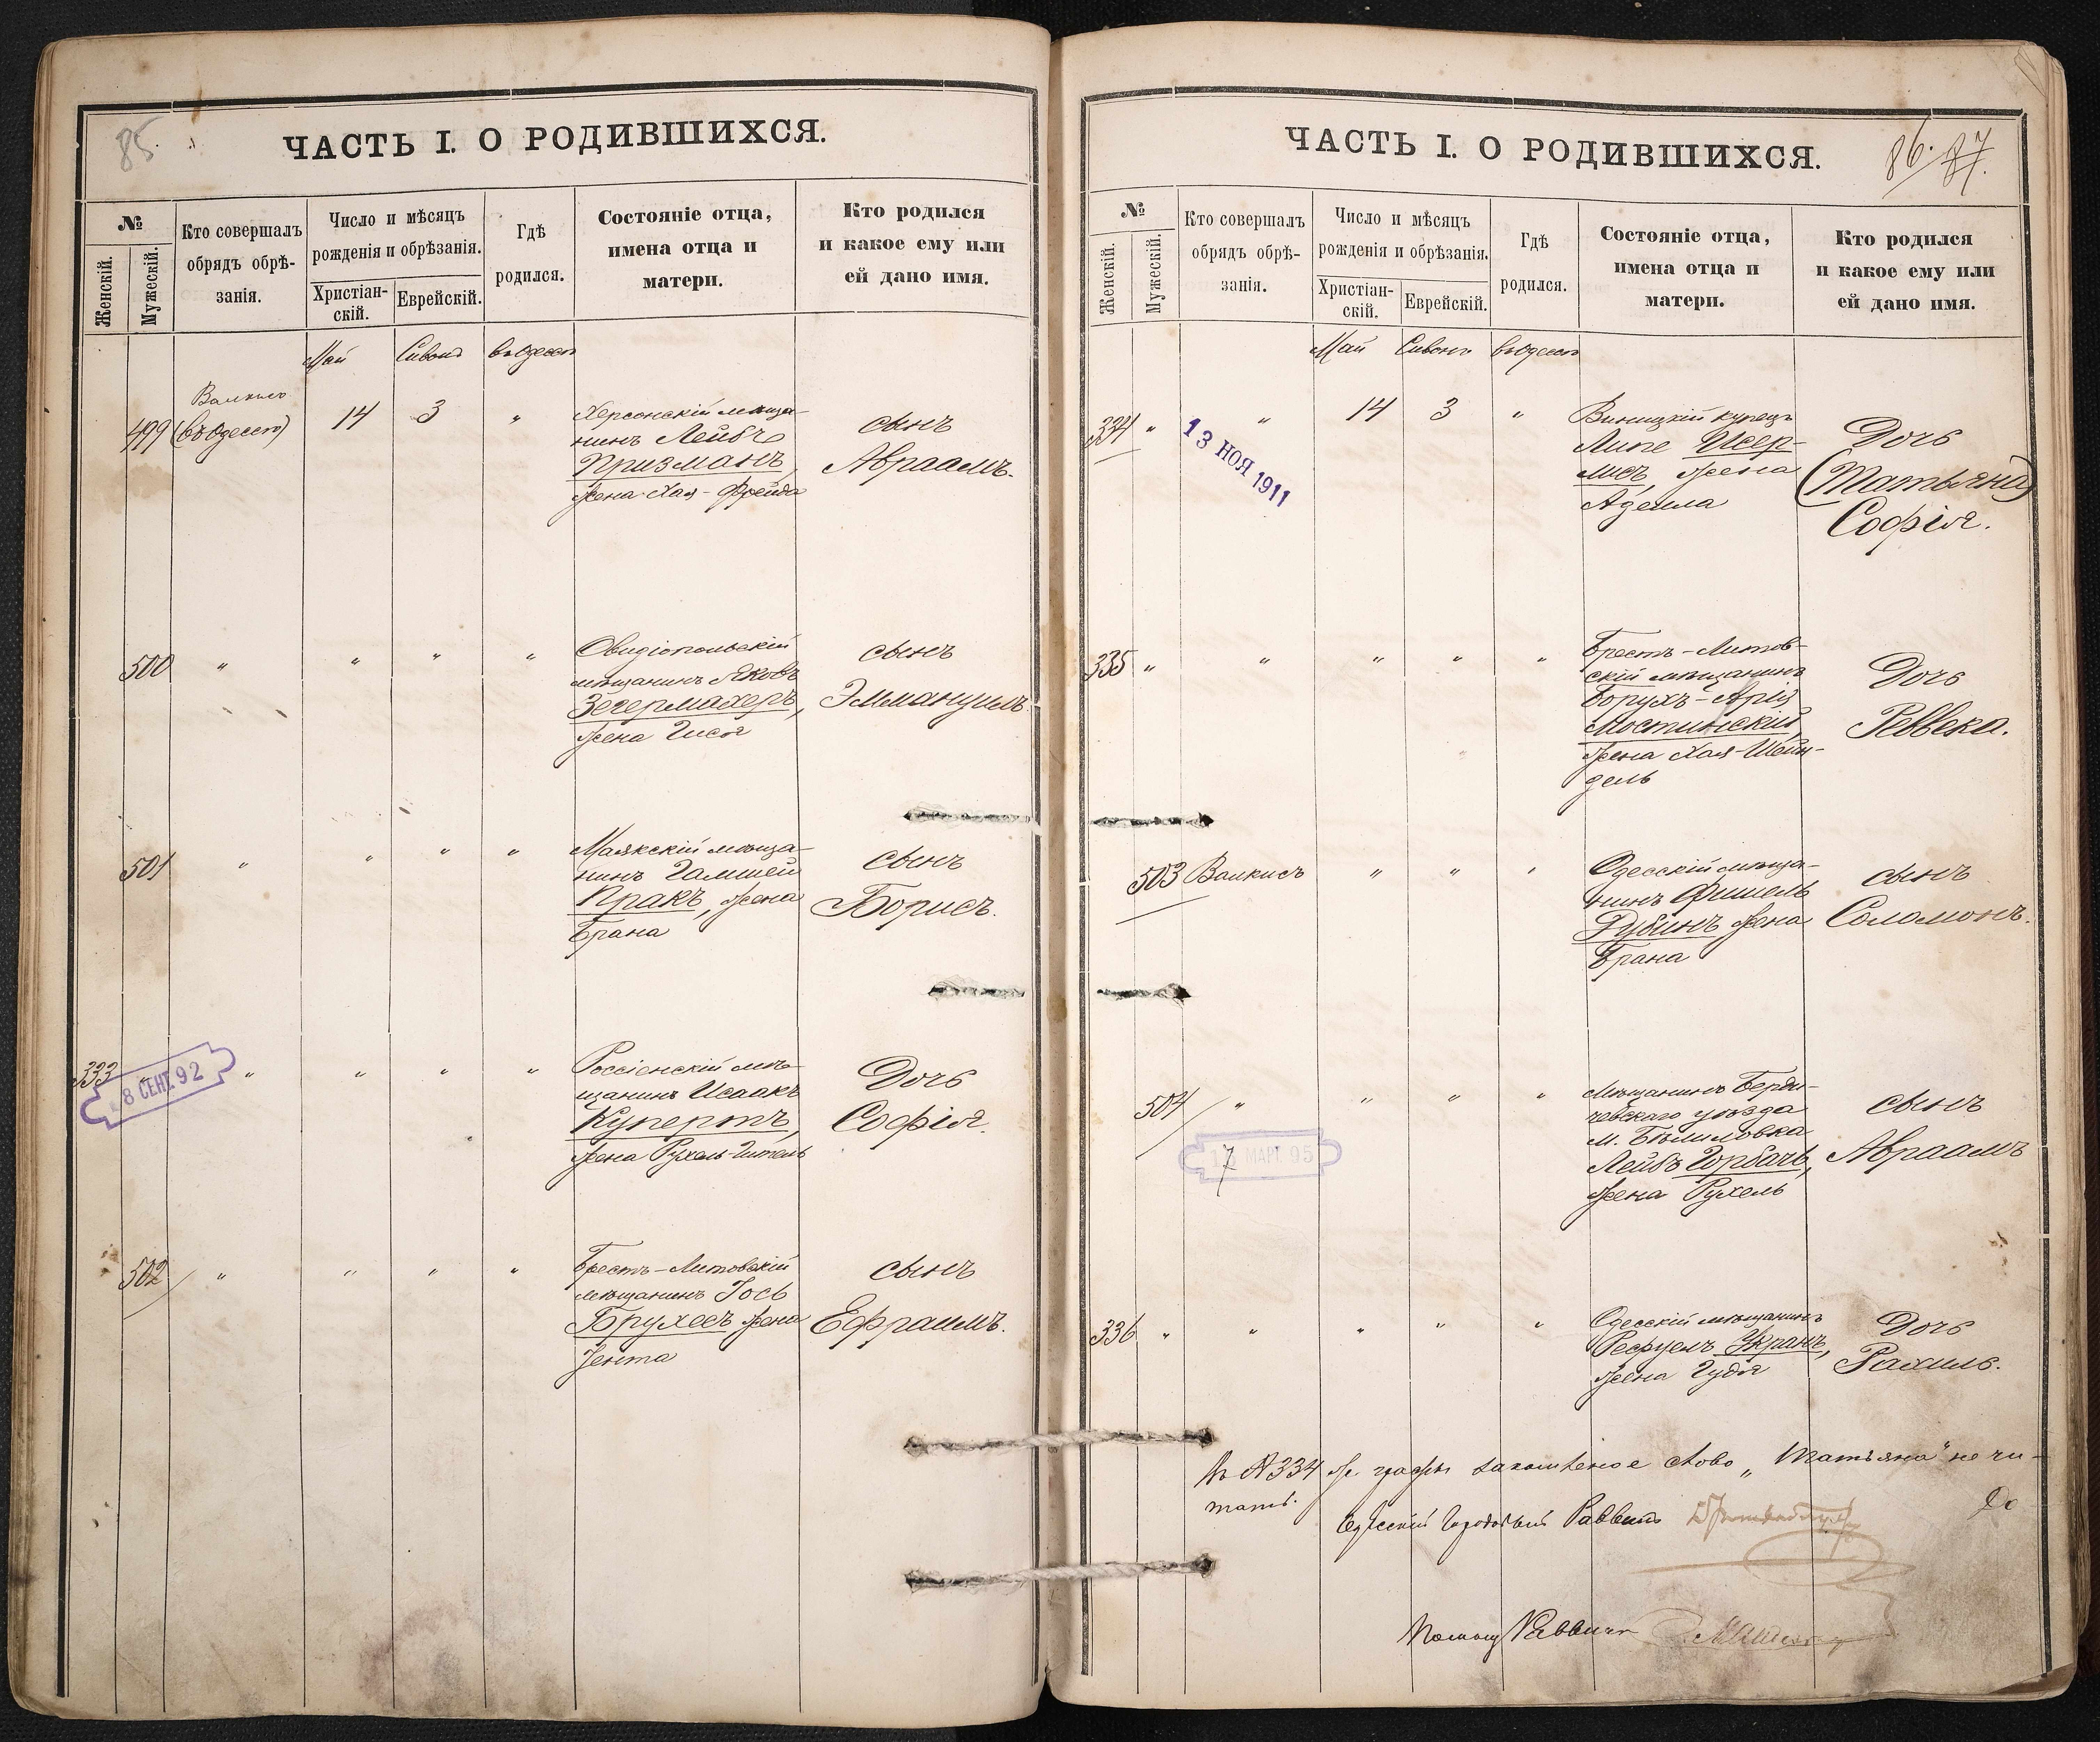 85.
ЧАСТЬ I. О РОДИВШИХСЯ.
№
Женскій.
Мужескій.
Кто совершалъ
обрядъ обрѣ-
занія.
Число и мѣсяцъ
рожденія и обрѣзанія.
Христіан-
скій.
Еврейскій.
Гдѣ
родился.
Состояніе отца,
имена отца и
матери.
Кто родился
и какое ему или
ей дано имя.
Май Сивонъ въ Одессѣ
499
Валкисъ
(въ Одессѣ)
14 3 "
Херсонскій мѣща-
нинъ Лейбъ
Призманъ,
жена Хая-Фрейда
сынъ
Авраамъ.
500 " " " "
Овидіопольскій
мѣщанинъ Яковъ
Зегермахеръ,
жена Гися
сынъ
Эммануилъ.
501 " " " "
Маякскій мѣща-
нинъ
Пракъ, жена
Брана
сынъ
Борисъ.
333 " " " " "
8 СЕН. 92
Россіенскій мѣ-
щанинъ Исаакъ
Купертъ,
жена Рухель-Гитель
Дочь
Софія.
502 " " " "
Брестъ-Литовскій
мѣщанинъ Іось
Брухесъ жена
Іента
сынъ
Ефраимъ.
ЧАСТЬ I. О РОДИВШИХСЯ.
86. 87.
№
Женскій.
Мужескій.
Кто совершалъ
обрядъ обрѣ-
занія.
Число и мѣсяцъ
рожденія и обрѣзанія.
Христіан-
скій.
Еврейскій.
Гдѣ
родился.
Состояніе отца,
имена отца и
матери.
Кто родился
и какое ему или
ей дано имя.
Май Сивонъ въ Одессѣ
334 " " 14 3 "
13 НОЯ 1911
Виницкій купецъ
Липе Исер-
лисъ, жена
Аделла
Дочь
(Татьяна)
Софія.
335 " " " " "
Брестъ-Литов-
скій мѣщанинъ
Борухъ-Арія
Мостинскій,
жена Хая-Шейн-
дель
Дочь
Реввека.
503 Валкисъ " " "
Одесскій мѣща-
нинъ Фишель
Рубинъ жена
Брана
сынъ
Соломонъ.
504 " " " "
17 МАРТ. 95
Мѣщанинъ Берди-
чевскаго уѣзда
м. Бѣлиловка
Лейбъ Горбачъ,
жена Рухель
сынъ
Авраамъ
336 " " " " "
Одесскій мѣщанинъ
жена Гудя
Дочь
Рахиль.
въ №334 же графѣ слово „Татьяна" не чи-
тать.
Одесскій Городовый Раввинъ
Помощ Раввина